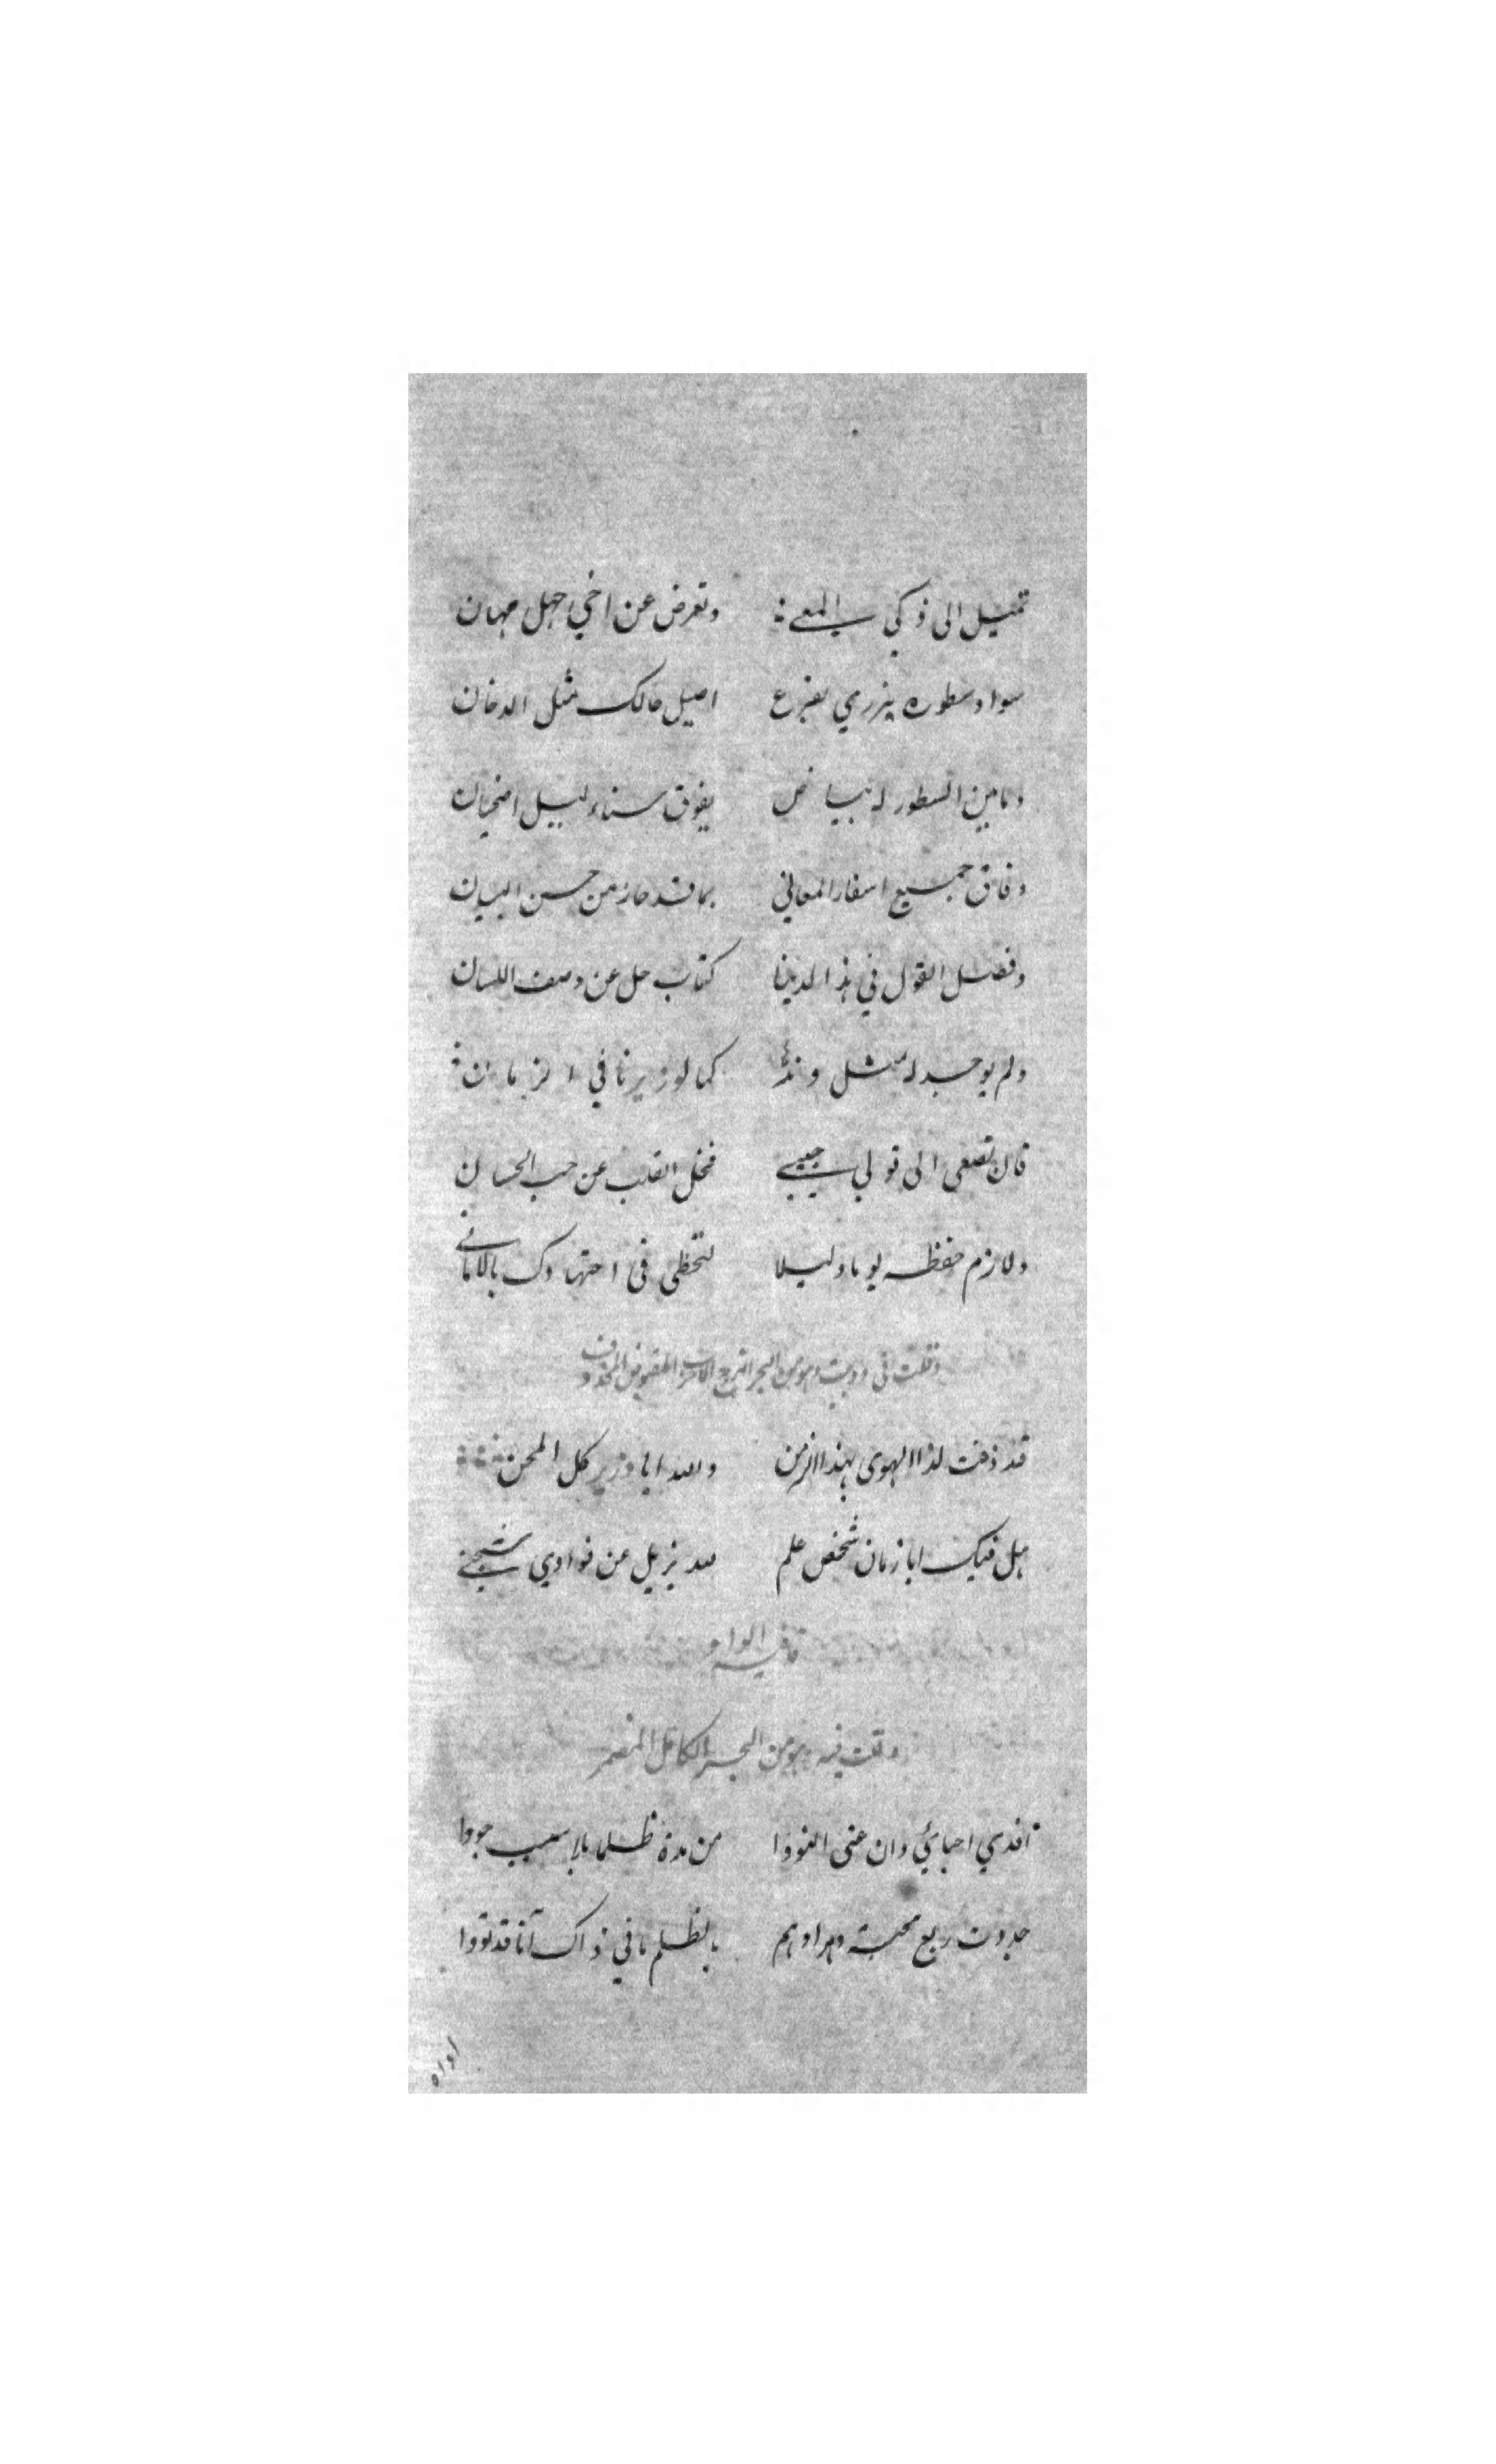 تميل الى ذكي المعي وتعرض عن اخي جهل مهان
سواد سطوره يزري بفرع اصيل حالك مثل الدخان
وما بين السطور له بياض يفوق سناء ليل اضحيان
وفاق جميع اسفار المعاني بما قد حاز من حسن البيان
وفصل القول في هذا لدينا كتاب جل عن وصف اللسان
ولم يوجد له مثل وند كما لوزيرنا في الزمان
فان تصغى الى قولي حبيبي فخل القلب عن حب الحسان
ولازم حفظه يوما وليلا لتحظى في اجتهادك بالاماني
وقلت في دوبيت وهو من البحر الهزج الاخرب المقبوض المحذوف
قد ذقت لذا الهوى بهذا الزمن والله ايا وزير كل المحن
هل فيك ايا زمان شخص علم لله يزيل عن فوادي شجني
قافية الواو
وقلت فيه وهو من البحر الكامل المضمر
افدي احبائي وان عنى الغووا من مدة ظلما بلا سبب جووا
جددت ربع محبة ومرادهم بالظلم ما في ذاك آنا قد تووا